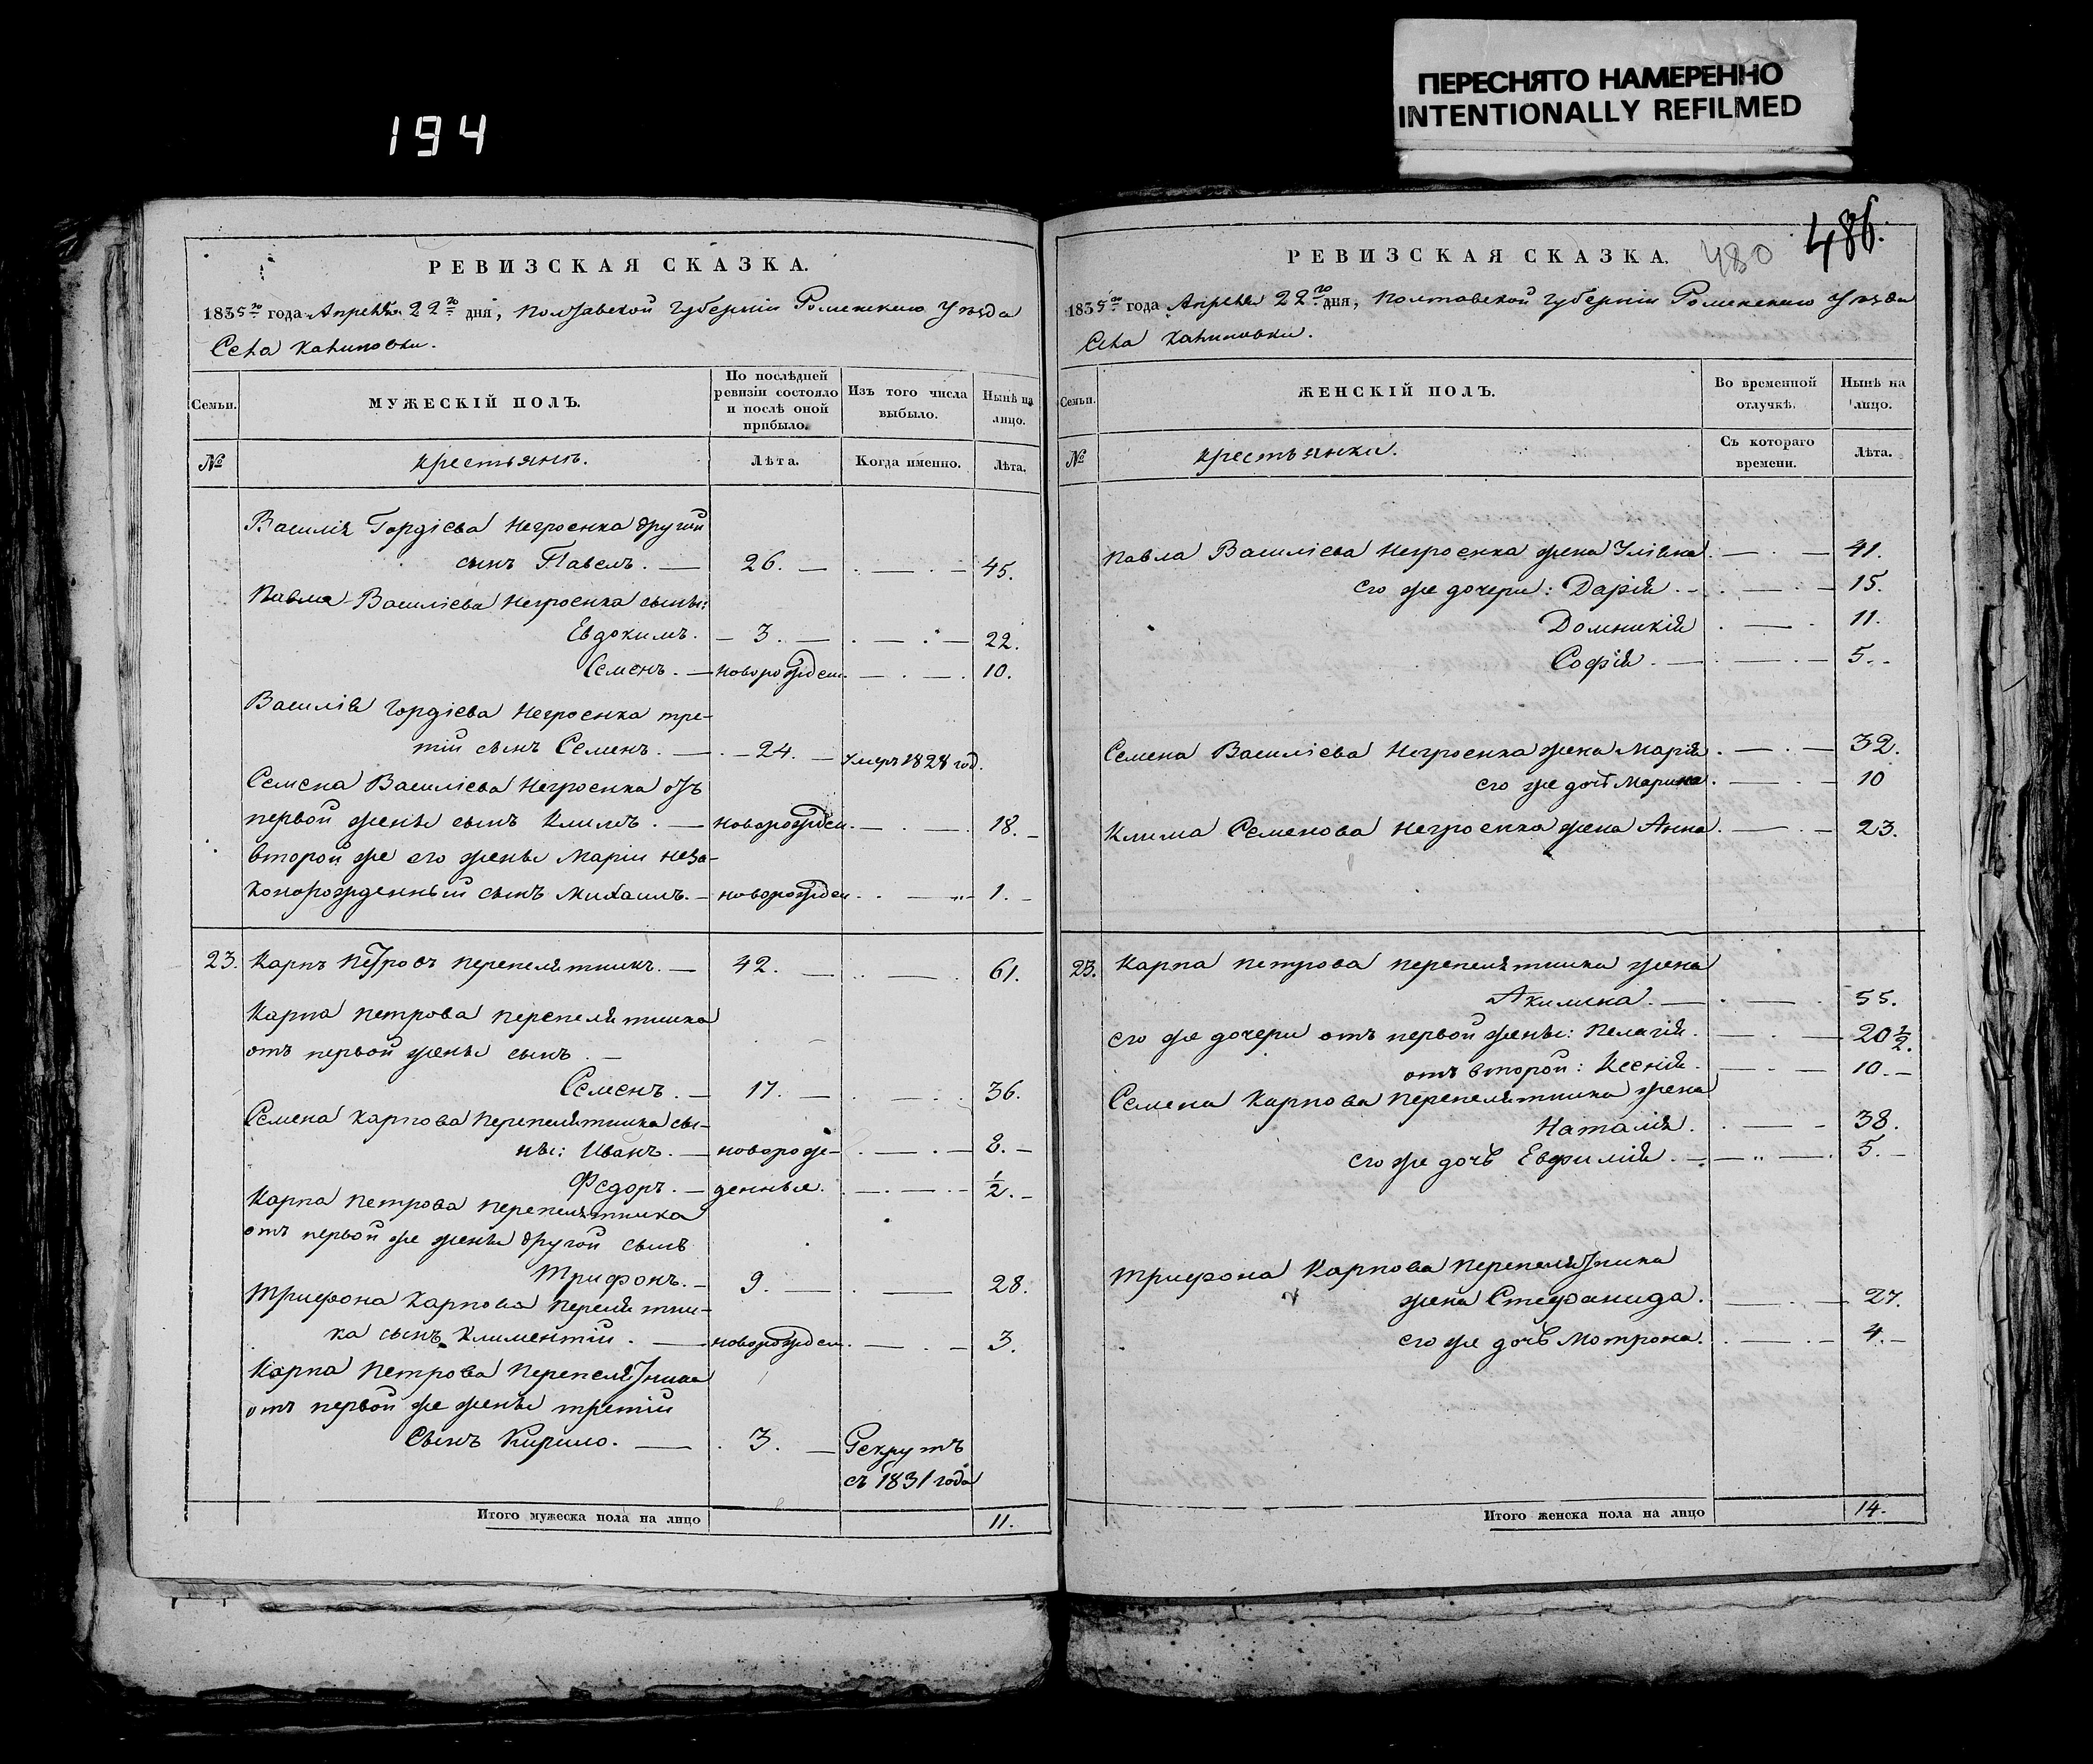 194
ПЕРЕСНЯТО НАМЕРЕННО
INTENTIONALLY REFILMED
РЕВИЗСКАЯ СКАЗКА.
1835го года Апреля 22го дня, Полтавской Губерніи Роменскаго Уезда
Села Калиновки.
Семьи.
МУЖЕСКІЙ ПОЛЪ.
По послѣдней ревизіи состояло и послѣ оной прибыло.
Изъ того числа выбыло.
Нынѣ на лицо.
№
Крестьянъ.
Лѣта.
Когда именно.
Лѣта.
Василія Гордіева Негроенка другий
сынъ Павелъ. 26. 45.
Павла Василіева Негроенка сыны:
Евдокимъ. 3. 22.
Семенъ. новорожден. 10.
Василія Гордіева Негроенка тре-
тій сынъ Семенъ. 24. умеръ 1828 год.
Семена Василіева Негроенка отъ
первой жены сынъ Климъ. новорожден. 18.
второй же его жены Маріи неза-
конорожденный сынъ Михаилъ. новорожден 1.
23. Карпъ Петровъ Перепелятникъ. 42. 61.
Карпа Петрова Перепелятника
отъ первой жены сынъ
Семенъ. 17. 36.
Семена Карпова Перепелятника сы-
ны: Иванъ. новорож- 8.
Федоръ. денные. ½.
Карпа Петрова Перепелятника
отъ первой же жены другой сынъ
Трифонъ. 9. 28.
Трифона Карпова Перелятни-
ка сынъ Климентій. новорожден. 3.
Карпа Петрова Перепелятника
отъ первой же жены третій
Сынъ Кирило. 3. Рекрутъ
съ 1831 года
Итого мужеска пола на лицо 11.
РЕВИЗСКАЯ СКАЗКА. 480 486.
1835го года Апреля 22го дня, Полтавской Губерніи Роменскаго Уезда
Села Калиновки.
Семьи.
ЖЕНСКІЙ ПОЛЪ.
Во временной отлучкѣ.
Нынѣ на лицо.
№
Крестьянки.
Съ котораго времени.
Лѣта.
Павла Василіева Негроенка жена Уліяна. 41.
его же дочери: Дарія. 15.
Домникія 11.
Софія. 5.
Семена Василіева Негроенка жена Марія. 32.
его же дочь Марина. 10
Клима Семенова Негроенка жена Анна. 23.
23. Карпа Петрова Перепелятника жена
Акилина. 55.
его же дочери отъ первой жены: Пелагія. 20½.
отъ второй: Ксенія. 10.
Семена Карпова Перепелятника жена
Наталія. 38.
его же дочь Евфимія. 5.
Трифона Карпова Перепелятника
жена Стефанида. 27.
его же дочь Мотрона. 4.
Итого женска пола на лицо 14.